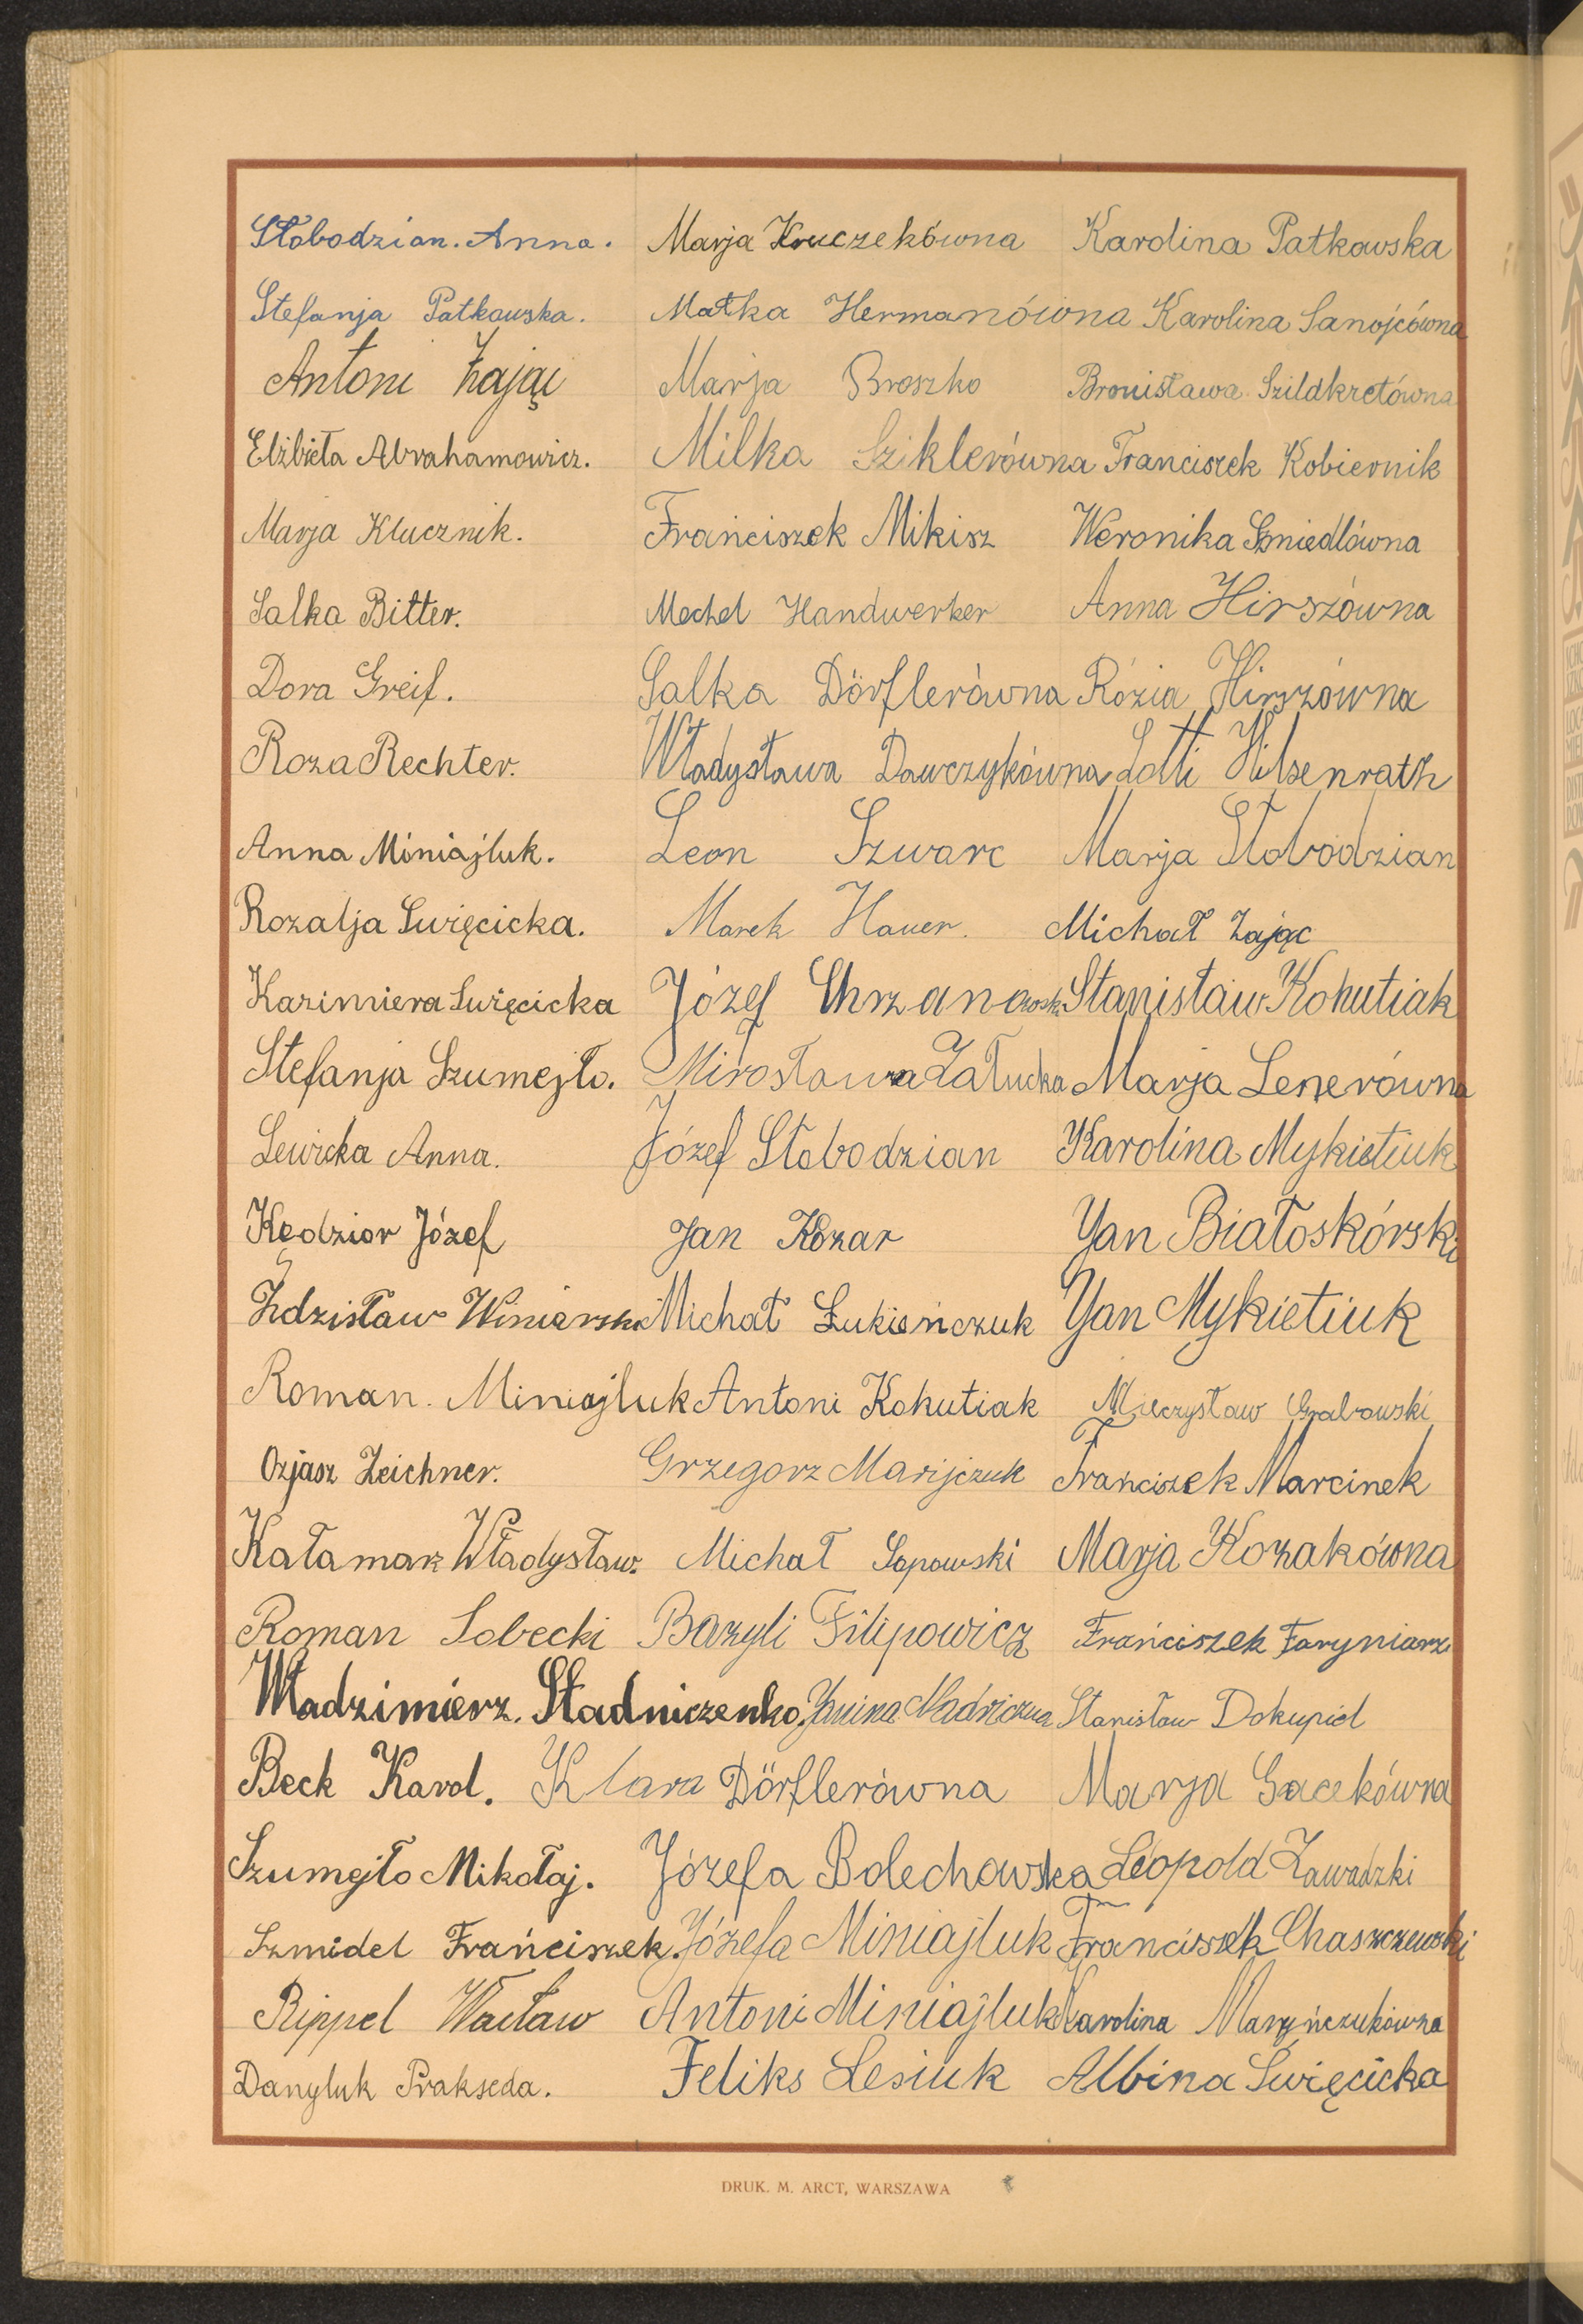 Słobodzian. Anna. Marja Kruczekówna Karolina Patkowska
Stefanja Patkowska. Matka Hermanówna Karolina Sanojcówna
Antoni Zając Marja Broszko Bronisława Szildkretówna
Elżbieta Abrahamowicz. Milka Sziklerówna Franciszek Kobiernik
Marja Klucznik. Frańciszek Mikisz Weronika Szmiedlówna
Salka Bitter. Mechel Handwerker Anna Hirszówna
Dora Greif. Salka Dörflerówna Rózia Hirszówna
Roza Rechter. Władysława Dawczykówna Lotti Hilsenrath
Anna Miniajluk. Leon Szwarc Marja Słobodzian
Rozalja Swięcicka. Marek Hauer. Michał Zając
Kazimiera Swięcicka Józef Chrzanowski Stanisław Kohutiak
Stefanja Szumejło. Mirosława Załucka Marja Lenerówna
Lewicka Anna. Józef Słobodzian Karolina Mykietiuk
Kędzior Józef Jan Kozar Yan Białoskórski
Zdzisław Winiarski Michał Łukieńczuk Yan Mykietiuk
Roman. Miniajluk Antoni Kohutiak Mieczysław Grabowski
Ozjasz Zeichner. Grzegorz Marijczuk Frańciszek Marcinek
Kałamarz Władysław. Michał Sopowski Marja Kozakówna
Roman Sobecki Bazyli Filipowicz Frańciszek Faryniarz
Władzimierz. Stadniczenko. Stanisław Dokupiel
Beck Karol. Klara Dörflerówna Marja Gacekówna
Szumejło Mikołaj. Józefa Bolechowska Leopold Zawadzki
Szmidel Frańciszek. Józefa Miniajluk Franciszek Chaszczewski
Rippel Wacław Antoni Miniajluk Karolina Maryńczukówna
Danyluk Prakseda. Feliks Lesiuk Albina Swięcicka
DRUK. M. ARCT, WARSZAWA